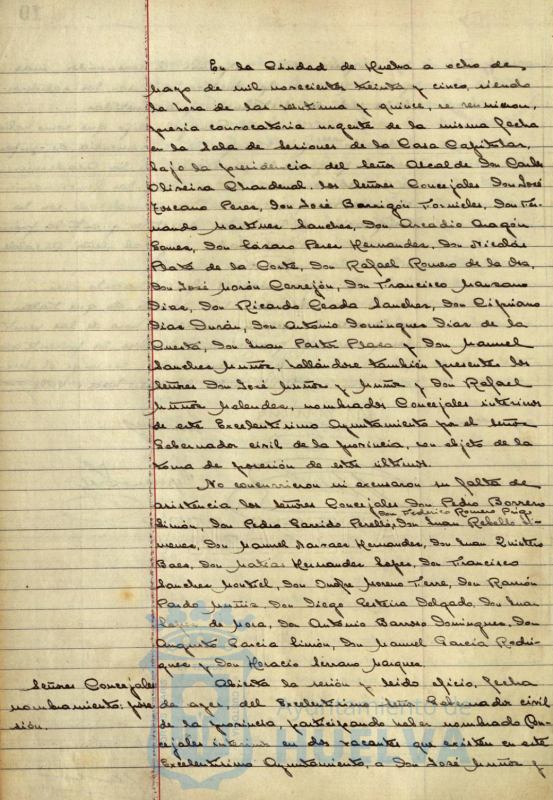 En la Ciudad de Huelva a ocho de
Mayo de mil novecientos treinta y cinco, siendo
la hora de las veintiuna y quince, se reunieron,
previa convocatoria urgente de la misma fecha
en la Sala de Sesiones de la Casa Capitular,
bajo la presidencia del Señor Alcalde Don Carlos
Oliveira Chardenal, los Señores Concejales Don José
Toscano Perez, Don José Barrigón Fornieles, Don Fer-
nando Martinez Sanchez, Don Arcadio Aragón
Gomez, Don Lázaro Perez Hernandez, Don Nicolás
Plata de la Corte, Don Rafael Romero de la Osa,
Don José Morón Cerrejón, Don Francisco Manzano
Diaz, Don Ricardo Ceada Sanchez, Don Cipriano
Diaz Durán, Don Antonio Dominguez Diaz de la
Cuesta, Don Juan Plaza y Don Manuel
Sanchez Muñoz, hallándose también presentes los
Señores Don José Muñoz y Muñoz y Don Rafael
Muñoz nombrados Concejales interinos
de este Excelentísimo Ayuntamiento por el Señor
Gobernador civil de la provincia, con objeto de la
toma de posesión de estos últimos.
No concurrieron ni excusaron su falta de
asistencia, los Señores Concejales Don Pedro Borrero
Don Federico Romero
Limón, Don Pedro Garrido Perelló, Don Juan Rebollo Ji-
menez, Don Manuel Narvaez Hernandez, Don Juan Quintero
Baez, Don Matías Hernandez Lopez, Don Francisco
Sanchez Montiel, Don Onofre Moreno Don Ramón
Pardo Muñiz, Don Diego Delgado, Don Juan
Lopez de Mora, Don Antonio Barroso Dominguez, Don
Augusto Garcia Limón, Don Manuel Garcia Rodri-
guez y Don Horacio Serrano Marquez.
Señores Concejales
nombramiento: pose
sión.
Abierta la sesión y leido oficio, fecha
de ayer, del Excelentísimo Señor Gobernador civil
de la provincia, participando haber nombrado Con-
cejales interinos en dos vacantes que existen en este
Excelentísimo Ayuntamiento, a Don José Muñoz y
Ayuntamiento de
HUELVA